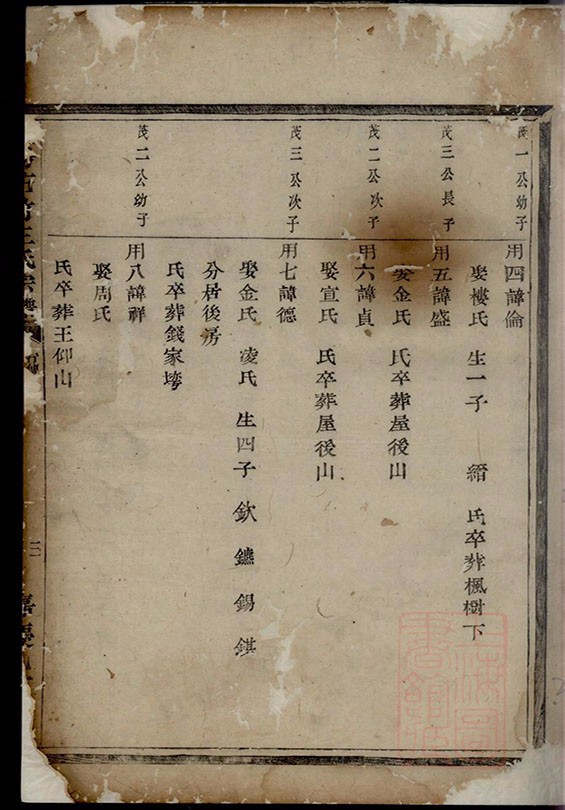 茂一公幼子
用四諱倫
娶樓氏 生一子 縉 氏卒葬楓樹下
茂三公長子
用五諱盛
娶金氏 氏卒葬屋後山
茂二公次子
用六諱貞
娶宣氏 氏卒葬屋後山
茂三公次子
用七諱德
娶金氏 凌氏 生四子 欽 鑣 錫 錤
分居後房
氏卒葬錢家塆
茂二公幼子
用八諱祥
娶周氏
氏卒葬王仰山
王氏宗譜
三